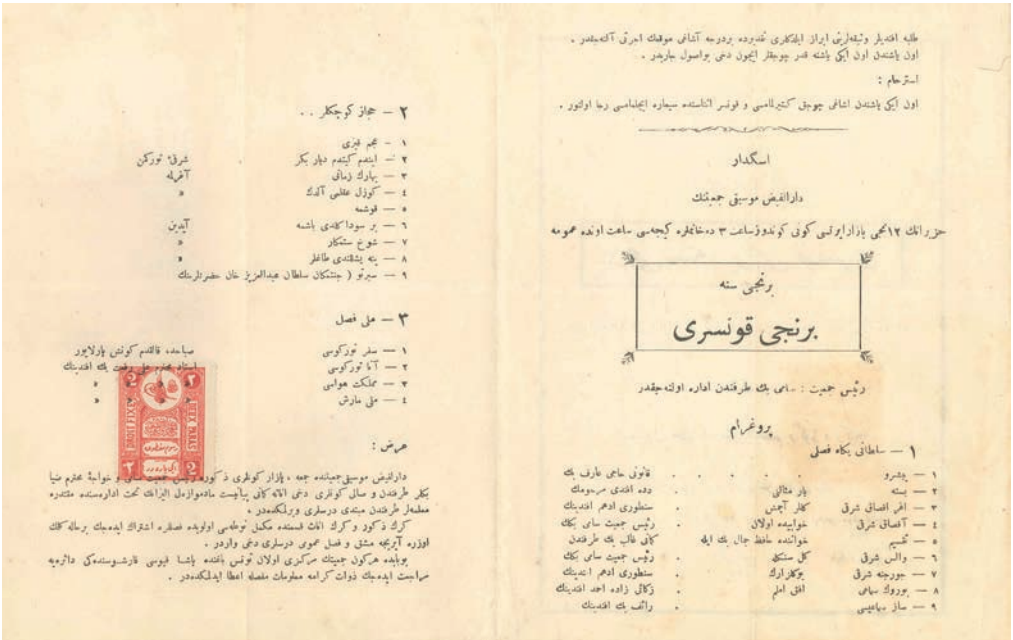 طلبه افنديلر وثيقه‌لرينى ابراز ايلدكلرى تقديرده بردرجه آشاغى موقعك اجرتى آلنه‌جقدر .
اون ياشندن اون ايكى ياشنه قدر چوجقلر ايچون دخى بواصول جاريدر .
استرحام :
اون ايكى ياشندن اشاغى چوجق كتيرلمامسى و قونسر اثناسنده سيغاره ايچلمامسى رجا اولنور .
اسكدار
دارالفيض موسيقى جمعيتنك
حزيرانك ١٢نجى بازارايرتسى كونى كوندوزساعت ٣ ده‌خانملره كيجه‌سى ساعت اونده عمومه
برنجى سنه
برنجى قونسرى
رئيس جمعيت : سامى بك طرفندن اداره اولنه‌جقدر
پروغرام
١ — سلطانى يكاه فصلى
١ — پيشرو . . . . . قانونى حاجى عارف بك
٢ — بسته يار مثالى . دده افندى مرحومك
٣ — آغر اقصاق شرقى كلار آچمش . سنطورى ادهم افندينك
٤ — آقصاق شرقى خوابيده اولان . رئيس جمعيت سامى بكك
٥ — تقسيم خواننده حافظ جمال بك ايله كمانى غالب بك طرفندن
٦ — والس شرقى كل سنكله . رئيس جمعيت سامى بكك
٧ — جورجنه شرقى بوكلزارك . سنطورى ادهم افندينك
٨ — يوروك سماعى افق املم . زكائى زاده احمد افندينك
٩ — ساز سماعيسى . رائف بك افندينك
٢ — حجاز كوچكلر . .
١ — عجم قيزى
٢ — ايندم كيتدم ديار بكر شرقئ توركمن
٣ — بهارك زمانى آغرله
٤ — كوزل عقلمى آلدك »
٥ — قوشمه
٦ — بر سودا كلدى باشمه آيدين
٧ — شوخ ستمكار »
٨ — ينه يشللندى طاغلر »
٩ — سيرتو ( جنتمكان سلطان عبدالعزيز خان حضرتلرينك
٣ — ملى فصل
١ — سفر توركوسى صباحده قالقدم كونش پارلايور
٢ — آنا توركوسى استاد محترم على رفعت بك افندينك
٣ — مملكت هواسى » » » »
٤ — ملى مارش » » » »
عرض :
دارالفيض موسيقى جمعيتنده جمعه ، پازار كونلرى ذكوره رئيس جمعيت سامى و خواجهٔ محترم ضيا
بكلر طرفندن و صالى كونلرى دخى اناثه كمانى پيانيست مادموازل اليزانك تحت اداره‌سنده مقتدره
معلمه‌لر طرفندن مبتدى درسلرى ويرلمكده‌در .
كرك ذكور و كرك اناث قسمنده مكمل نوطه‌سى اولويده فصلره اشتراك ايده‌جك برحاله كلك
اوزره آيريجه مشق و فصل عمومى درسلرى دخى واردر .
بوبابده هركون جمعيتك مركزى اولان تونس باغنده پاشا قپوسى قارشوسنده‌كى دائره‌يه
مراجعت ايده‌جك ذوات كرامه معلومات مفصله اعطا ايدلمكده‌در .
2
٢
DROIT FIXE